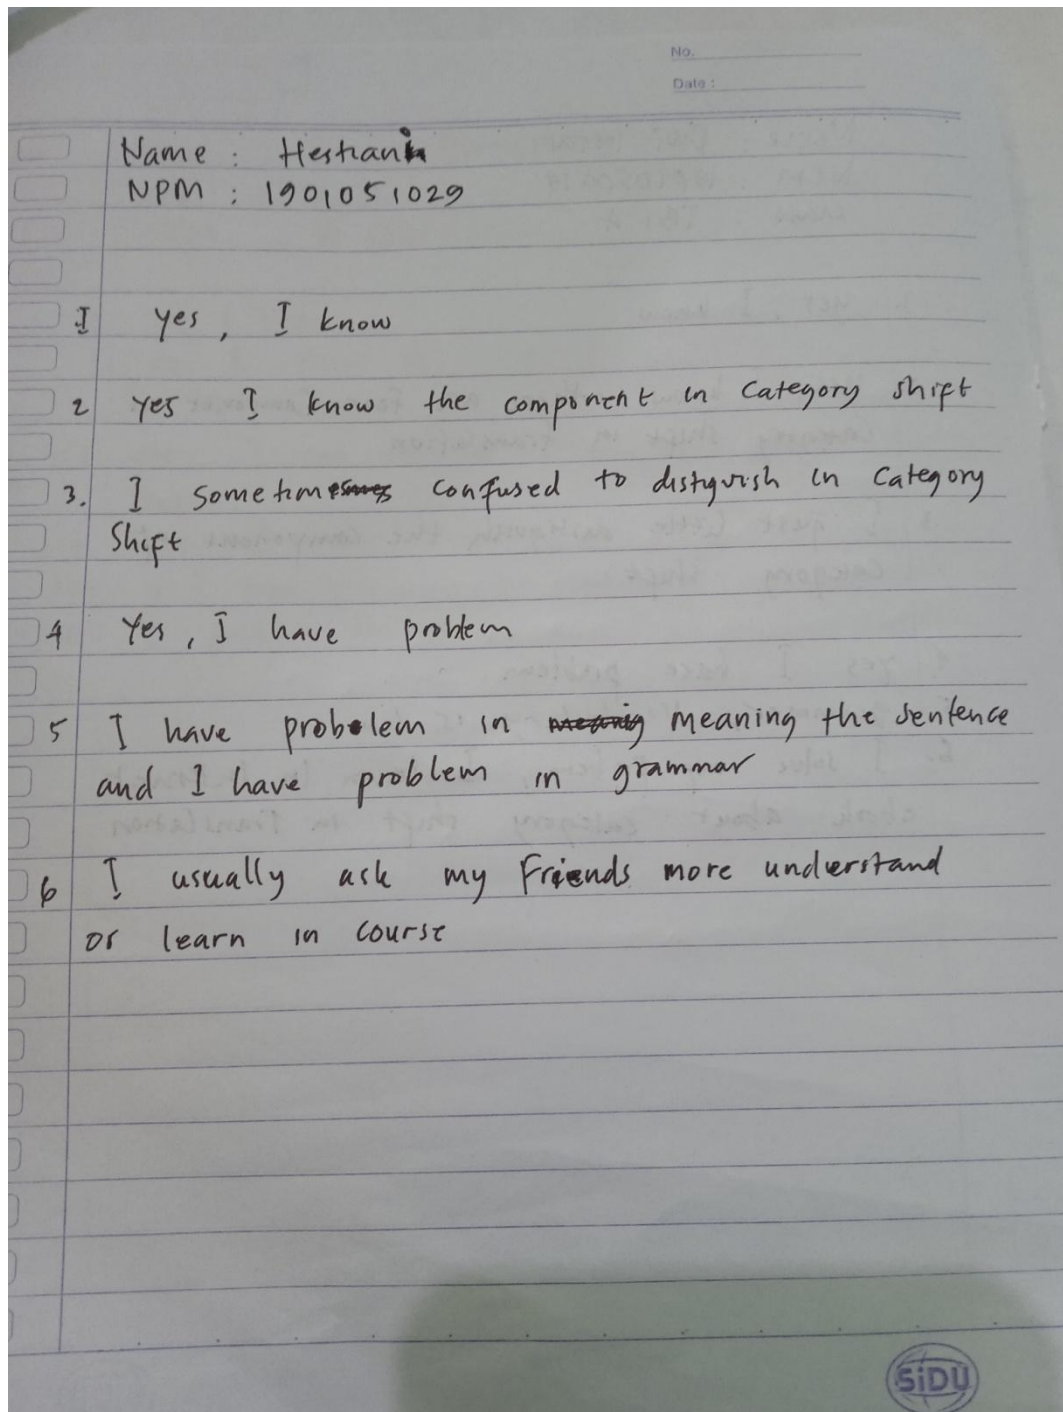 No.
Date :
Name : Hestiani
NPM : 1901051029
1 yes, I know
2 yes I know the component in category shift
3. I sometimes confused to distiguish in category
Shift
4 Yes, I have problem
5 I have probolem in meaning the sentence
and I have problem in grammar
6 I usually ask my Friends more understand
or learn in course
SiDU